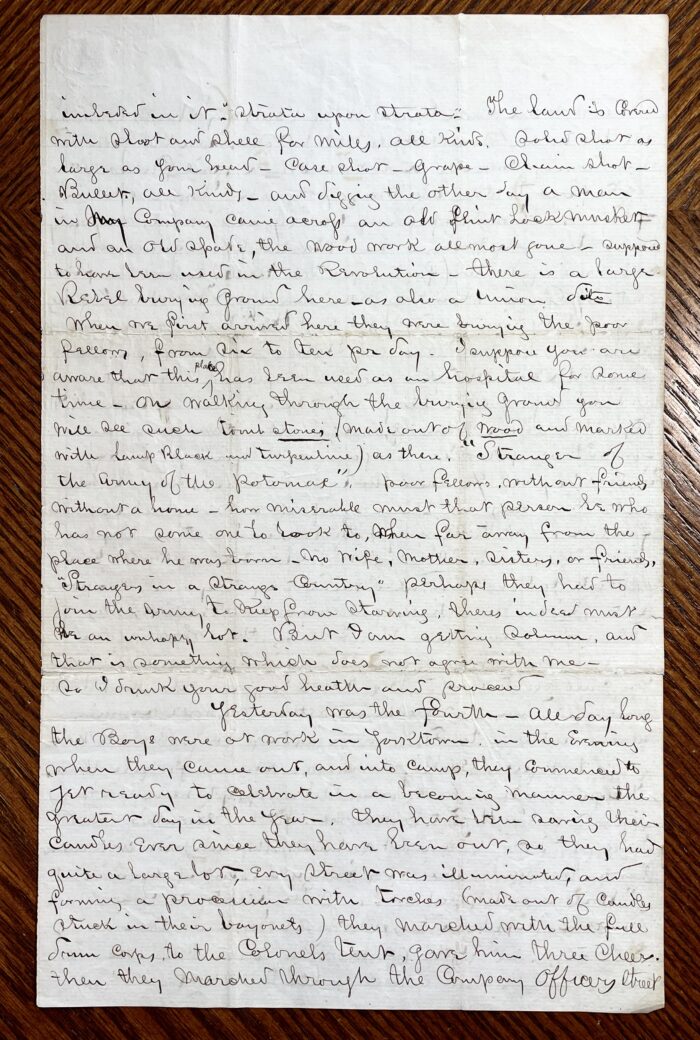 imbeded in it "strata upon strata." The land is Covered
with shoot and shell for miles, all kinds. Solid shot as
large as your head - Case shot - grape - Chain shot -
Bullets, all kinds - and digging the other day a man
in my Company came across an old flint lock musket
and an old spade, the wood work allmost gone - supposed
to have been used in the Revolution - there is a large
Rebel burying ground here - as also a Union dito
When we first arrived here they were burying the poor
fellows, from six to ten pr day. I suppose you are
aware that this place has been used as an hospital for some
time - on walking through the burying ground you
will see such tomb stones (made out of wood and marked
with Lamp Black and turpentine) as these. "Stranger of
the Army of the Potomac". poor fellows, without friends
without a home - how miserable must that person be who
has not some one to look to, when far away from the
place where he was born - no wife, mother, sisters, or friends,
"Strangers in a Strange Country" perhaps they had to
join the army, to keep from starving, theres indeed must
be an unhappy lot. But I am getting solumn, and
that is something which does not agree with me -
so I drink your good health and proceed
Yesterday was the fourth - all day long
the Boys were at work in Yorktown. in the Evening
when they came out, and into camp, they commenced to
get ready to celebrate in a becoming manner the
greatest day in the year. they have been saving their
Candles ever since they have been out, so they had
quite a large lot, Evry street was illuminated, and
forming a procession with torches (made out of Candles
stuck in their bayonets) they marched with the full
drum corps, to the Colonels tent, gave him three cheers.
then they marched through the Company officers street